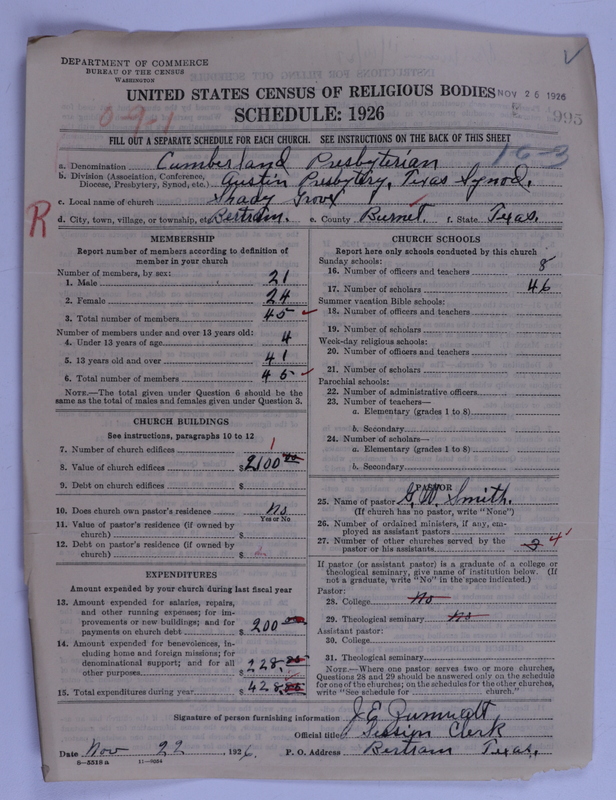 DEPARTMENT OF COMMERCE
BUREAU OF THE CENSUS
WASHINGTON
UNITED STATES CENSUS OF RELIGIOUS BODIES
NOV 26 1926
SCHEDULE: 1926
995
0-9-1
FILL OUT A SEPARATE SCHEDULE FOR EACH CHURCH. SEE INSTRUCTIONS ON THE BACK OF THIS SHEET
16-3
a. Denomination Cumberland Presbyterian
b. Division (Association, Conference, Diocese, Presbytery, Synod, etc.) Austin Presbytery, Texas Synod.
c. Local name of church Shady Grove
R
d. City, town, village, or township, etc. Bertram. e. County Burnet. f. State Texas.
MEMBERSHIP
Report number of members according to definition of
member in your church
Number of members, by sex:
1. Male 21
2. Female 24
3. Total number of members 45
Number of members under and over 13 years old:
4. Under 13 years of age 4
5. 13 years old and over 41
6. Total number of members 45
NOTE.—The total given under Question 6 should be
same as the total of males and females given under Question 3.
CHURCH BUILDINGS
See instructions, paragraphs 10 to 12
7. Number of church edifices 1
8. Value of church edifices $2100 00
9. Debt on church edifices $
10. Does church own pastor's residence No
Yes or No
11. Value of pastor's residence (if owned by
church) $
12. Debt on pastor's residence (if owned by
church) $
EXPENDITURES
Amount expended by your church during last fiscal year
13. Amount expended for salaries, repairs,
and other running expenses; for im-
provements or new buildings; and for
payments on church debt $ 200
14. Amount expended for benevolences, in-
cluding home and foreign missions; for
denominational support; and for all
other purposes $ 228.
15. Total expenditures during year $ 428.
CHURCH SCHOOLS
Report here only schools conducted by this church
Sunday schools:
16. Number of officers and teachers 8
17. Number of scholars 46
Summer vacation Bible schools:
18. Number of officers and teachers
19. Number of scholars
Week-day religious schools:
20. Number of officers and teachers
21. Number of scholars
Parochial schools:
22. Number of administrative officers
23. Number of teachers—
a. Elementary (grades 1 to 8)
b. Secondary
24. Number of scholars—
a. Elementary (grades 1 to 8)
b. Secondary
PASTOR
25. Name of pastor G. W. Smith.
(If church has no pastor, write "None")
26. Number of ordained ministers, if any, em-
ployed as assistant pastors
27. Number of other churches served by the
pastor or his assistants 3 4
If pastor (or assistant pastor) is a graduate of a college or
theological seminary, give name of institution below. (If
not a graduate, write "No" in the space indicated.)
Pastor:
28. College No
29. Theological seminary No
Assistant pastor:
30. College
31. Theological seminary
NOTE.—Where one pastor serves two or more churches,
Questions 28 and 29 should be answered only on the schedule
for one of the churches; on the schedules for the other churches,
write "See schedule for church."
Signature of person furnishing information J. E.
Official title Session Clerk
Date Nov 22, 1926. P. O. Address Bertram Texas.
6—5519 a 11—9254